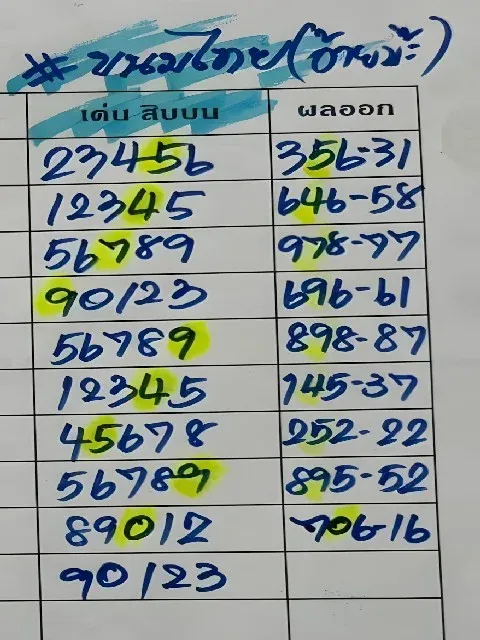 #ขนมไทย(อ้ายมะ้)
เด่น สิบบน ผลออก
23456 356-31
12345 646-58
56789 978-77
90123 696-61
56789 898-87
12345 145-37
45678 252-22
56789 895-52
89012 706-16
90123